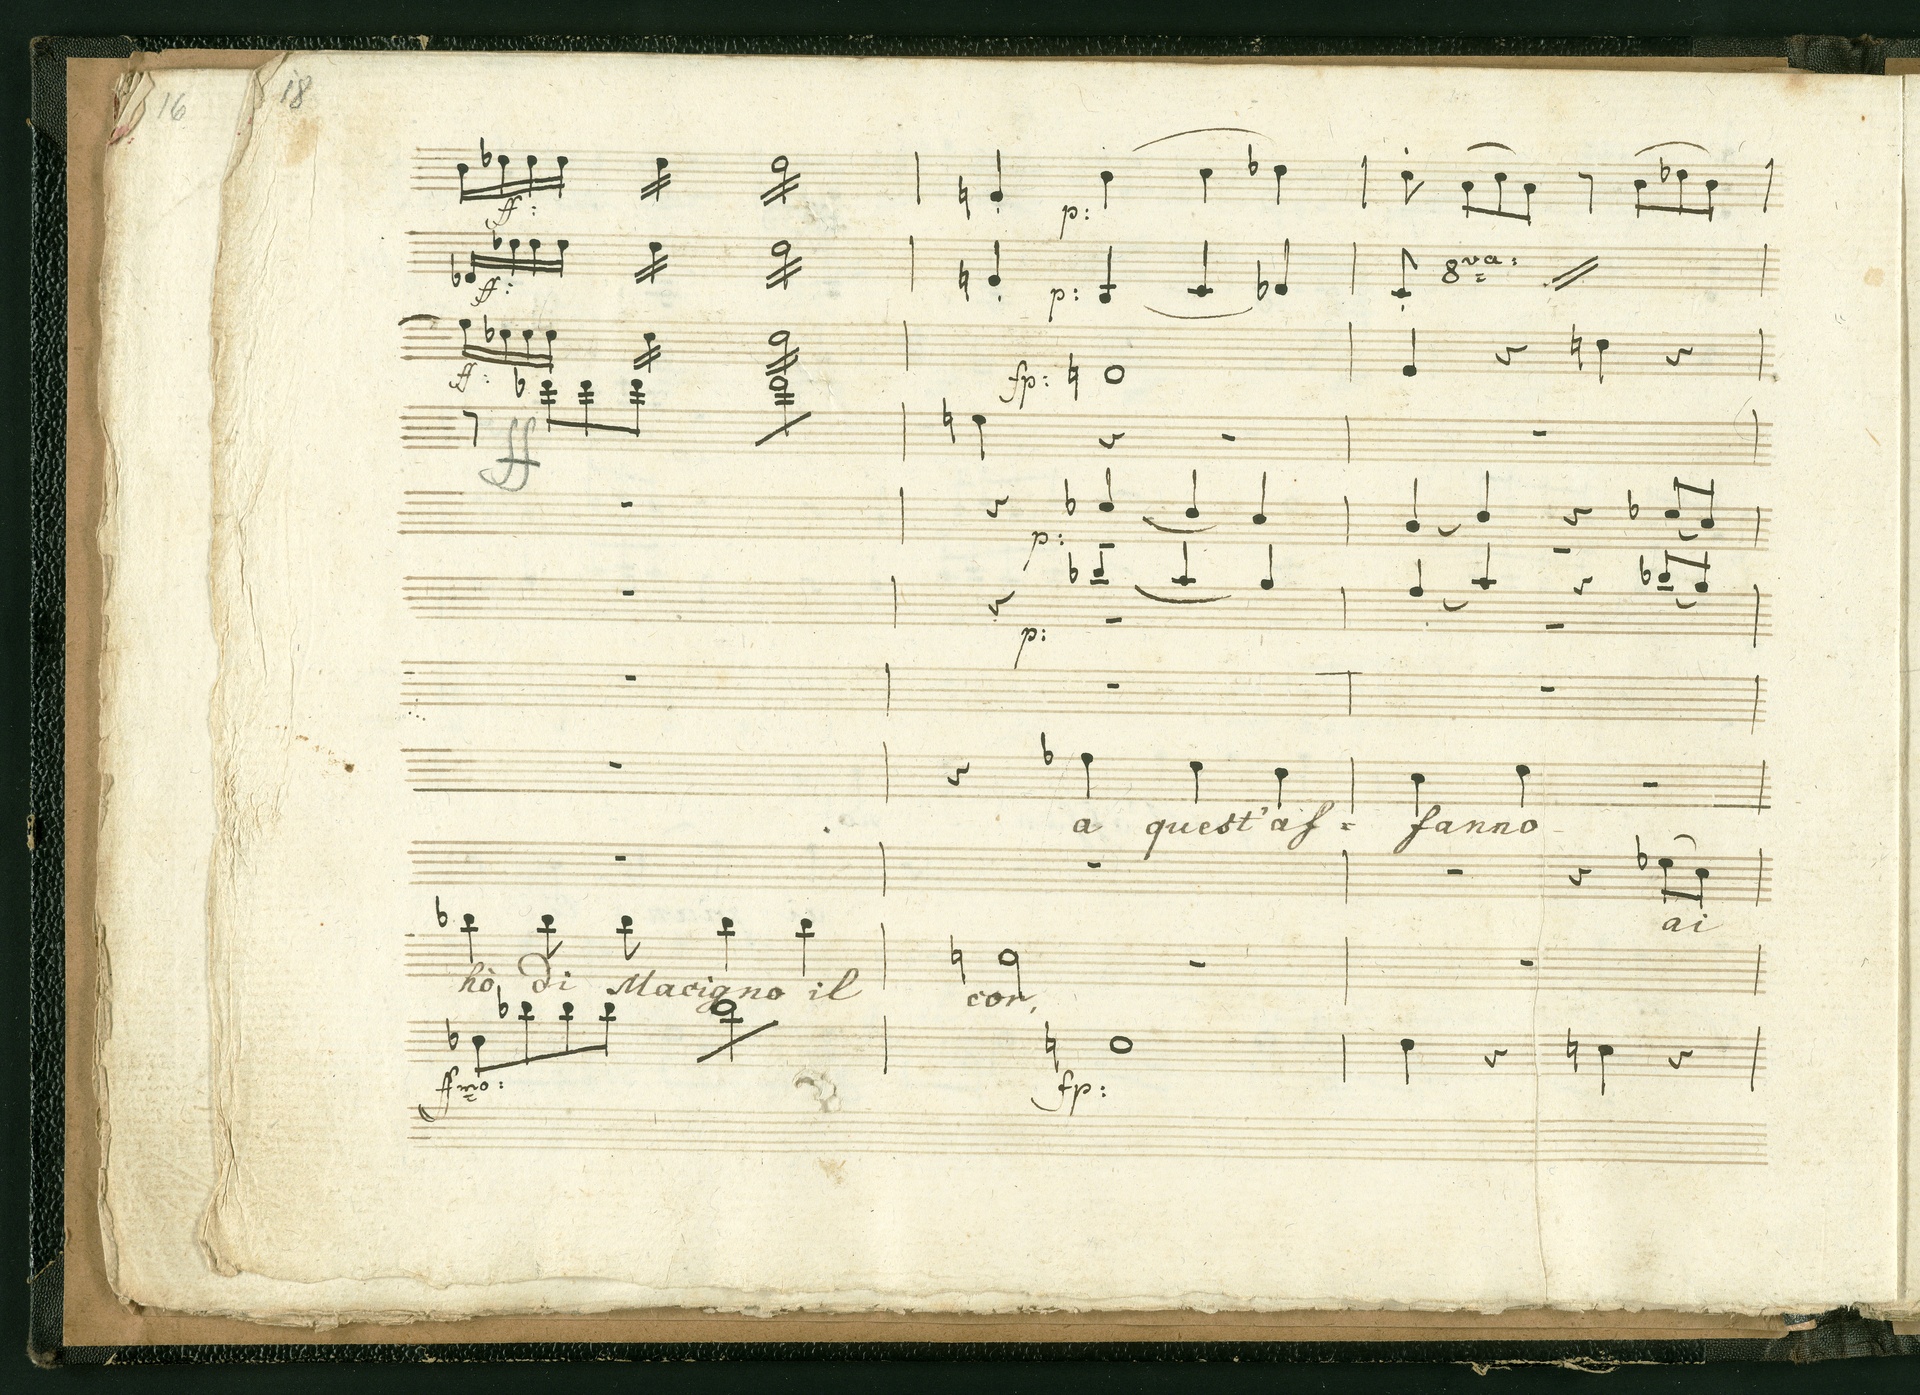 16
18
ff:
p:
ff:
p:
8va:
ff:
fp:
ff
p:
p:
a quest'af= fanno
ai
hò di Macigno il cor,
ffmo:
fp: